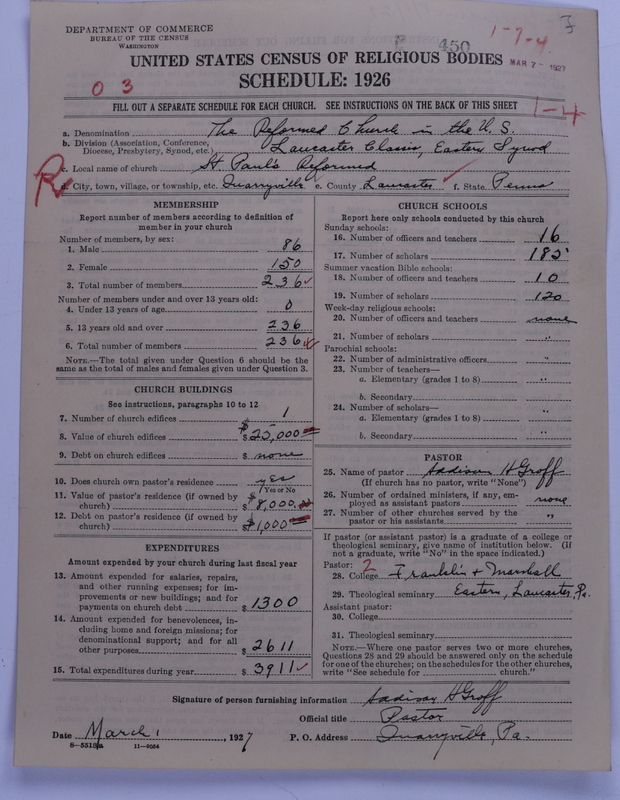 DEPARTMENT OF COMMERCE
BUREAU OF THE CENSUS
WASHINGTON
1-7-4
450
MAR 7 - 1927
UNITED STATES CENSUS OF RELIGIOUS BODIES
SCHEDULE: 1926
0 3
FILL OUT A SEPARATE SCHEDULE FOR EACH CHURCH. SEE INSTRUCTIONS ON THE BACK OF THIS SHEET
1-4
a. Denomination The Reformed Church in the U.S.
b. Division (Association, Conference, Diocese, Presbytery, Synod, etc.) Lancaster Classis, Eastern Synod
c. Local name of church St Paul's Reformed
d. City, town, village, or township, etc. Quarryville e. County Lancaster f. State Penna
MEMBERSHIP
Report number of members according to definition of
member in your church
Number of members, by sex:
1. Male 86
2. Female 150
3. Total number of members 236
Number of members under and over 13 years old:
4. Under 13 years of age 0
5. 13 years old and over 236
6. Total number of members 236
NOTE.—The total given under Question 6 should be
same as the total of males and females given under Question 3.
CHURCH BUILDINGS
See instructions, paragraphs 10 to 12
7. Number of church edifices 1
8. Value of church edifices $ 25,000
9. Debt on church edifices $ none
10. Does church own pastor's residence yes
(Yes or No
11. Value of pastor's residence (if owned by
church) $ 8,000.
12. Debt on pastor's residence (if owned by
church) $ 1,000
EXPENDITURES
Amount expended by your church during last fiscal year
13. Amount expended for salaries, repairs,
and other running expenses; for im-
provements or new buildings; and for
payments on church debt $ 1300
14. Amount expended for benevolences, in-
cluding home and foreign missions; for
denominational support; and for all
other purposes $ 2611
15. Total expenditures during year $ 3911
CHURCH SCHOOLS
Report here only schools conducted by this church
Sunday schools:
16. Number of officers and teachers 16
17. Number of scholars 185
Summer vacation Bible schools:
18. Number of officers and teachers 10
19. Number of scholars 120
Week-day religious schools:
20. Number of officers and teachers none
21. Number of scholars "
Parochial schools:
22. Number of administrative officers "
23. Number of teachers—
a. Elementary (grades 1 to 8) "
b. Secondary
24. Number of scholars— "
a. Elementary (grades 1 to 8)
b. Secondary "
PASTOR
25. Name of pastor Addison H Groff
(If church has no pastor, write "None")
26. Number of ordained ministers, if any, em-
ployed as assistant pastors none
27. Number of other churches served by the
pastor or his assistants "
If pastor (or assistant pastor) is a graduate of a college or
theological seminary, give name of institution below. (If
not a graduate, write "No" in the space indicated.)
Pastor: 2
28. College Franklin & Marshall
29. Theological seminary Eastern, Lancaster, Pa.
Assistant pastor:
30. College
31. Theological seminary
NOTE.—Where one pastor serves two or more churches,
Questions 28 and 29 should be answered only on the schedule
for one of the churches; on the schedules for the other churches,
write "See schedule for church."
Signature of person furnishing information Addison H Groff
Official title Pastor
Date March 1, 1927 P. O. Address Quarryville, Pa.
8-5518a 11-9054